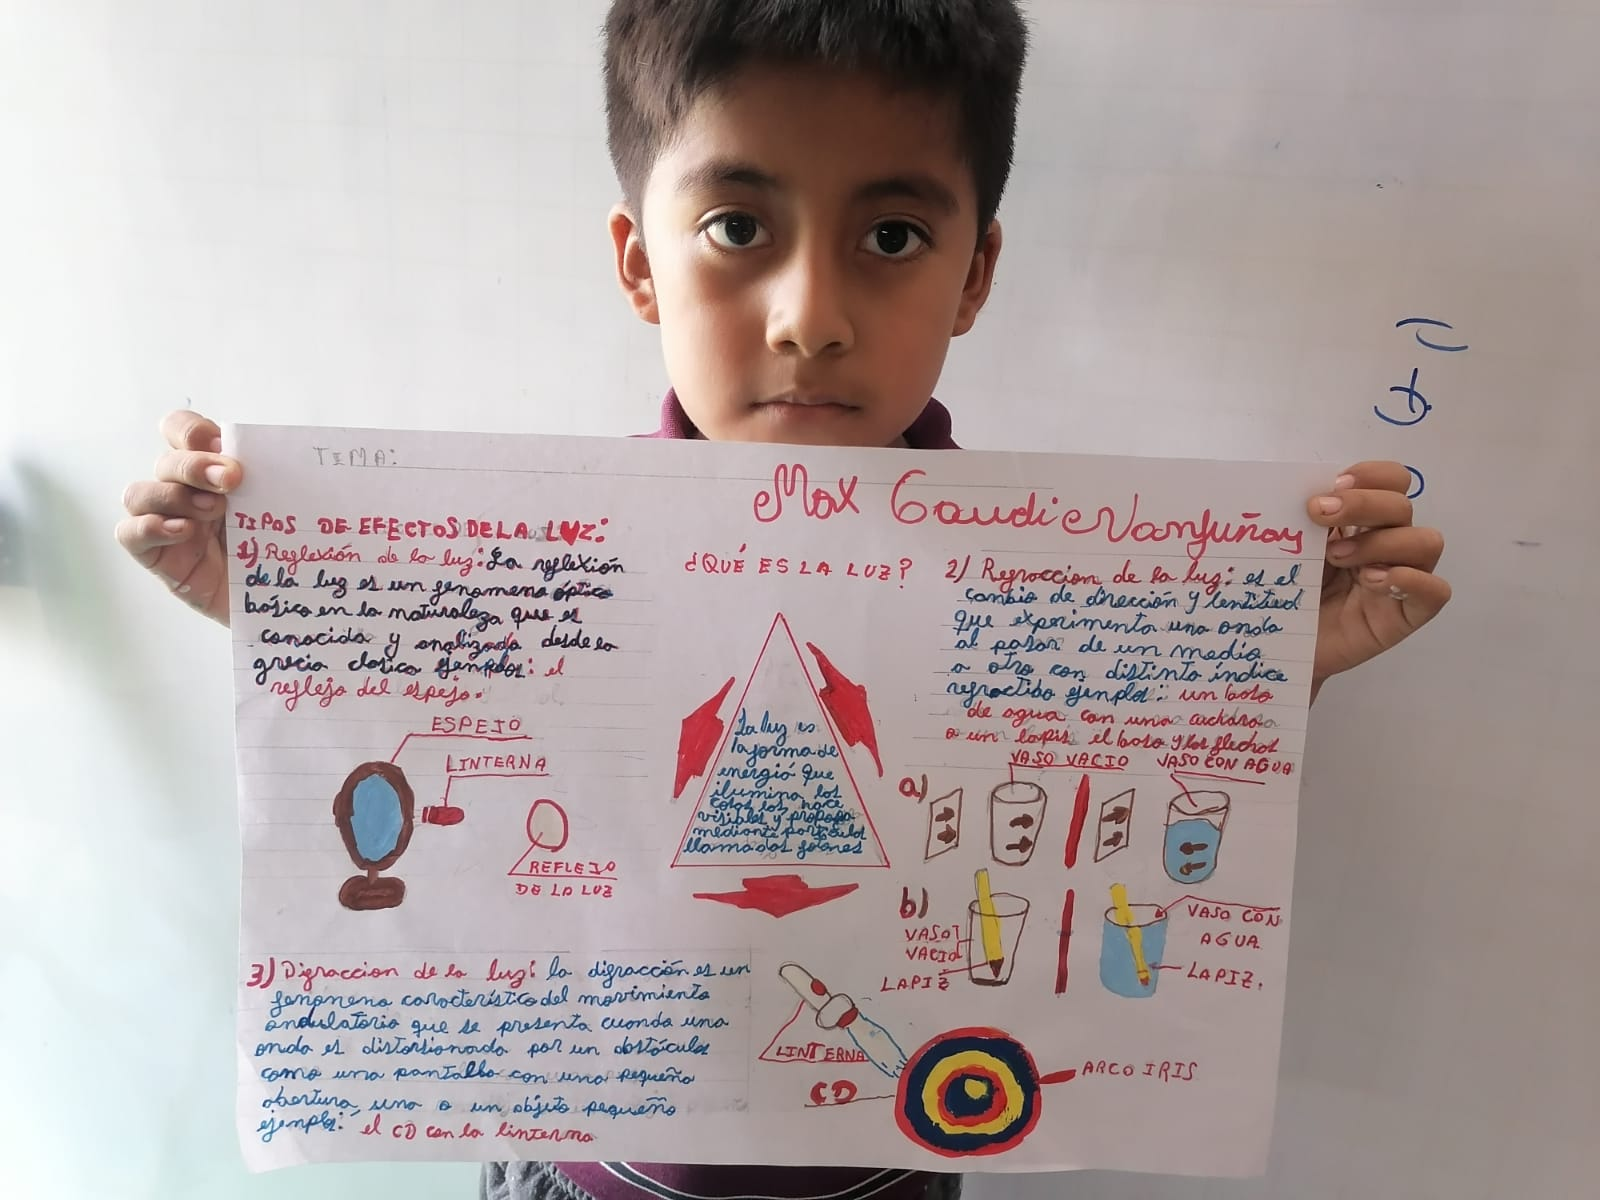 TEMA:
Max Gaudi Vanjuñay
TIPOS DE EFECTOS DE LA LUZ:
1) Reflexión de la luz: La reflexión
de la luz es un fenomeno óptico
básico en la naturaleza que es
conocida y analizada desde la
grecia clasica ejemplos: el
reflejo del espejo.
ESPEJO
LINTERNA
REFLEJO
DE LA LUZ
¿QUÉ ES LA LUZ?
La luz es
la forma de
energiá que
ilumina los
cosas los hace
visibles y propaga
mediante particulas
llamadas fotones
2) Refraccion de la luz: es el
cambio de dirección y lentitud
que experimenta una onda
al pasar de un medio
a otro con distinto índice
refractido ejemplo: un baso
de agua con una cuchara
o un lapis el baso y las flechas
VASO VACIO
VASO CON AGUA
a)
b)
VASO
VACIO
LAPIZ
VASO CON
AGUA
LAPIZ.
3) Difraccion de la luz: la difracción es un
fenomeno característico del movimiento
ondulatorio que se presenta cuando una
onda es distorsionada por un obstáculo
como una pantalla con una pequeña
abertura una o un objeto pequeño
ejemplo: el CD con la linterna
LINTERNA
CD
ARCO IRIS